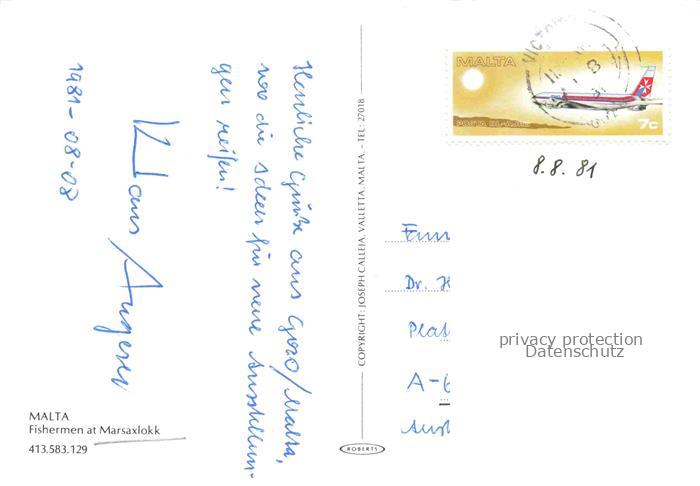 Herzliche Grüße aus Gozo/Malta,
wo die Ideen für neue Ausstellun-
gen reifen!
Hans Angerer
1981-08-08
MALTA
Fishermen at Marsaxlokk
413.583.129
COPYRIGHT: JOSEPH CALLEJA, VALLETTA, MALTA. - TEL: 27018
ROBERTS
MALTA
7c
8.8.81
Dr. H
A-6
privacy protection
Datenschutz